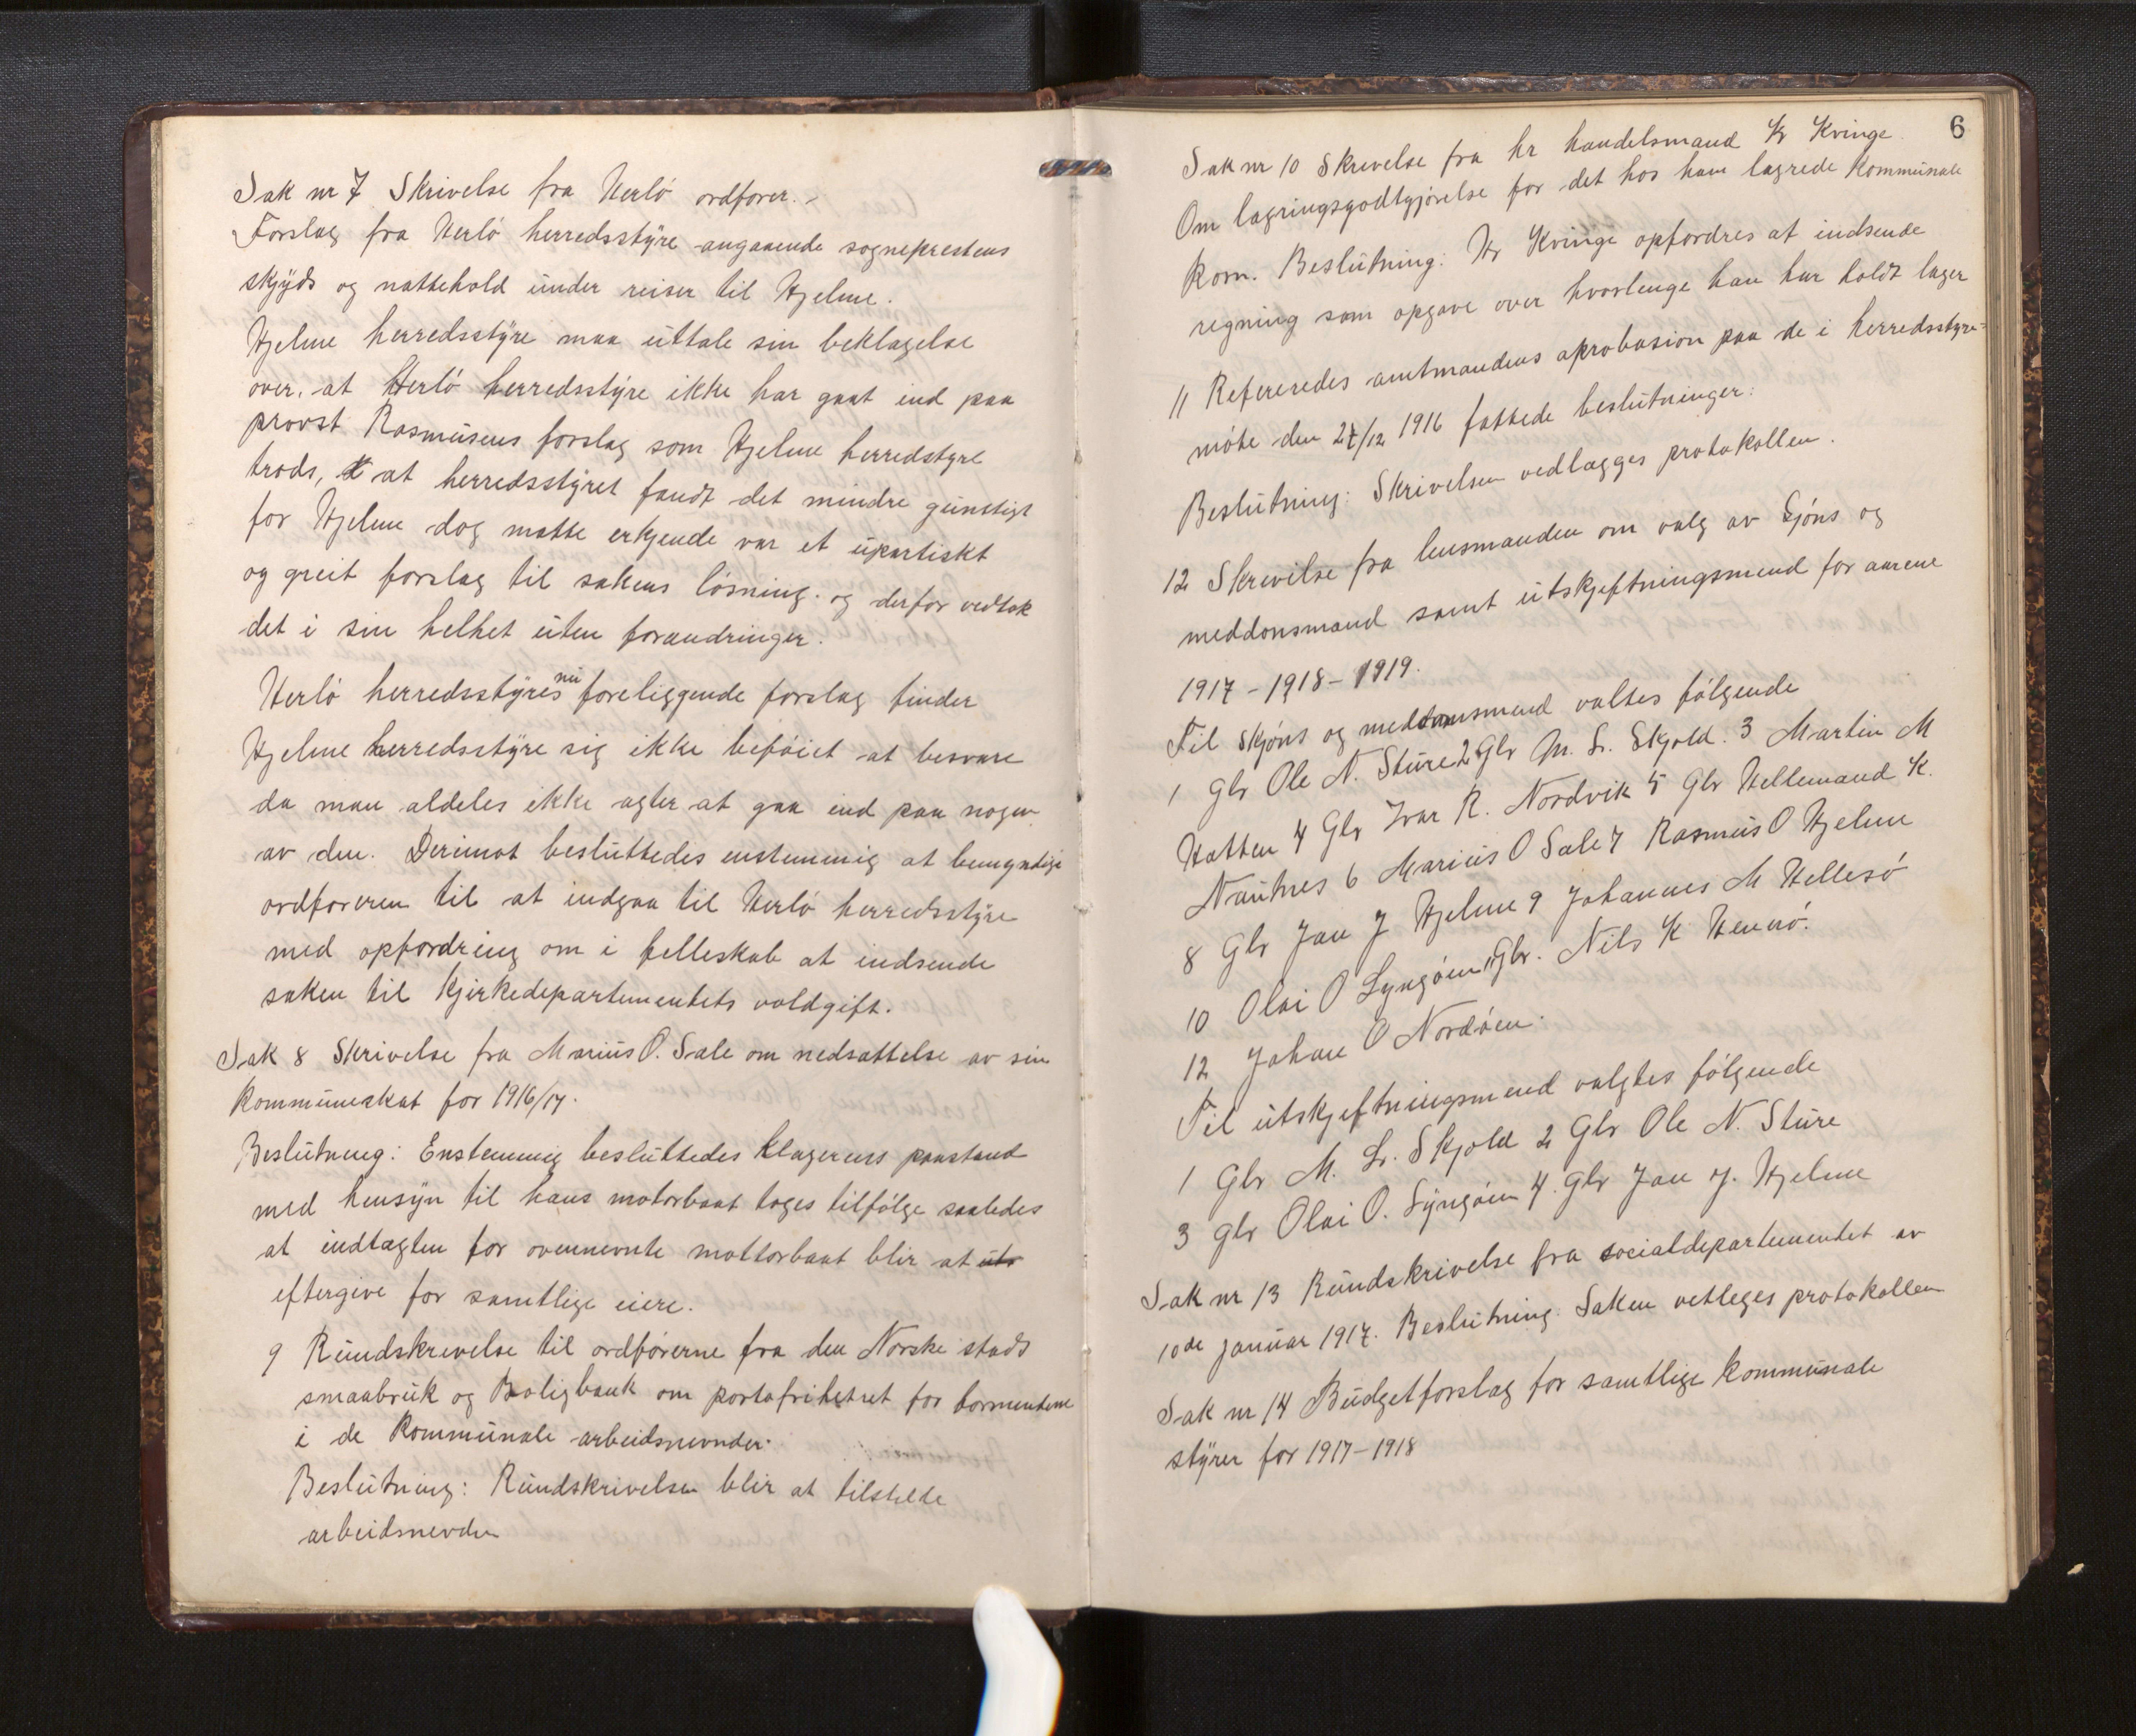 Sak nr 7 Skrivelse fra Herlö ordfører.-
Forslag fra Herlö herredsstyre angaaende sogneprestens
skyds og nattehold under reiser til Hjelme.
Hjelme herredsstyre maa uttale sin beklagelse
over. at Herlö herredsstyre ikke har gaat ind paa
provst Rasmusens forslag som Hjelme herredstyre
trods, at herredsstyret fandt det mindre gunstigt
for Hjelme dog matte erkjende var et upartiskt
og greit forslag til sakens løsning. og derfor vedtok
det i sin helhet uten forandringer.
Herlö herredsstyres nu foreliggende forslag finder
Hjelme herredsstyre sig ikke beføiet at besvare
da man aldeles ikke agter at gaa ind paa nogen
av den. Derimot besluttedes enstemmig at bemyndige
ordføreren til at indgaa til Herlö herredsstyre
med opfordring om i felleskab at indsende
saken til Kjirkedepartementets voldgift.
Sak 8 Skrivelse fra Marius O. Sale om nedsattelse av sin
kommuneskat for 1916/17.
Beslutning: Enstemmig besluttedes klagerens paastand
med hensyn til hans motorbaat tages tilfølge saaledes
at indtagten for ovennevnte mottorbaat blir at uts
eftergive for samtlige eiere.
9 Rundskrivelse til ordførerne fra den Norske stads
smaabruk og Boligbank om portofrihetret for formentene
i de kommunale arbeidsnevnder.
Beslutning: Rundskrivelsen blir at tilstelde
arbeidsnevden
6
Sak nr 10 Skrivelse fra hr handelsmand K Kvinge
Om lagringsgodtgjørelse for det hos ham lagrede kommunale
korn. Beslutning: Hr Kvinge opfordres at indsende
regning som opgave over hvorlenge han har holdt lager
11 Refereredes amtmandens aprobasion paa de i herredsstyre-
møte den 27/12 1916 fattede beslutninger:
Beslutning: Skrivelsen vedlægges protokollen.
12 Skrivilse fra lensmanden om valg av Sjöns og
meddonsmænd samt utskjeftningsmend for aarene
1917-1918-1919.
Til skjöns og meddomsmend valtes følgende
1 Gbr Ole N. Sture 2 Gbr M. L. Skjold. 3 Martin M
Hatten 4 Gbr Ivar R. Nordvik 5 Gbr Hellemand K.
Nautnes 6 Marius O Sale 7 Rasmus O Hjelme
8 Gbr Jan J Hjelme 9 Johannes M Hellesö
10 Olai O Lyngöien 11 Gbr. Nils K Hernö.
12 Johan O Nordöien.
Til utskjeftningsmend valgtes følgende
1 Gbr M. L. Skjold 2 Gbr Ole N. Sture
3 gbr Olai O. Lyngöien 4. gbr Jan J. Hjelme
Sak nr 13 Rundskrivelse fra socialdepartementet av
10de januar 1917. Beslutning. Saken vetleges protokollen
Sak nr 14 Budgetforslag for samtlige kommunale
styrer for 1917-1918